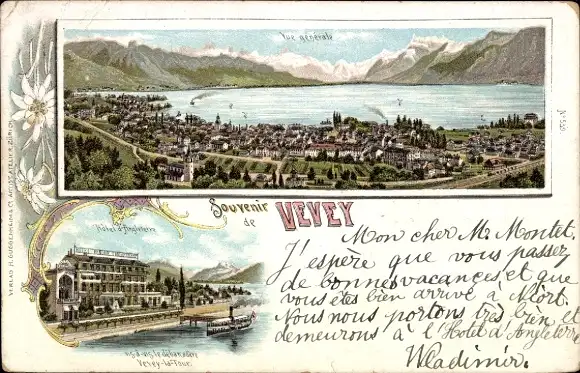 Vue générale
No 520
VERLAG H. GUGGENHEIM & Co. KUNSTATELIER ZÜRICH
Souvenir
de VEVEY
Hôtel d'Angleterre
vis-à-vis le débarcadère
Vevey-la-Tour.
Mon cher M. Montet.
J'espère que vous passez
de bonnes vacances et que
vous êtes bien arrivé à Niort.
Nous nous portons très bien et
demeurons à l'Hotel d'Angleterre
Wladimir.